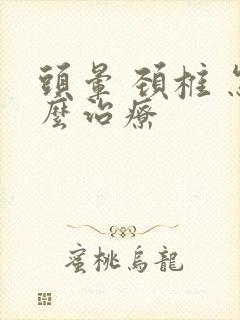 頭暈 頚椎 怎
麼治療
蜜桃烏龍